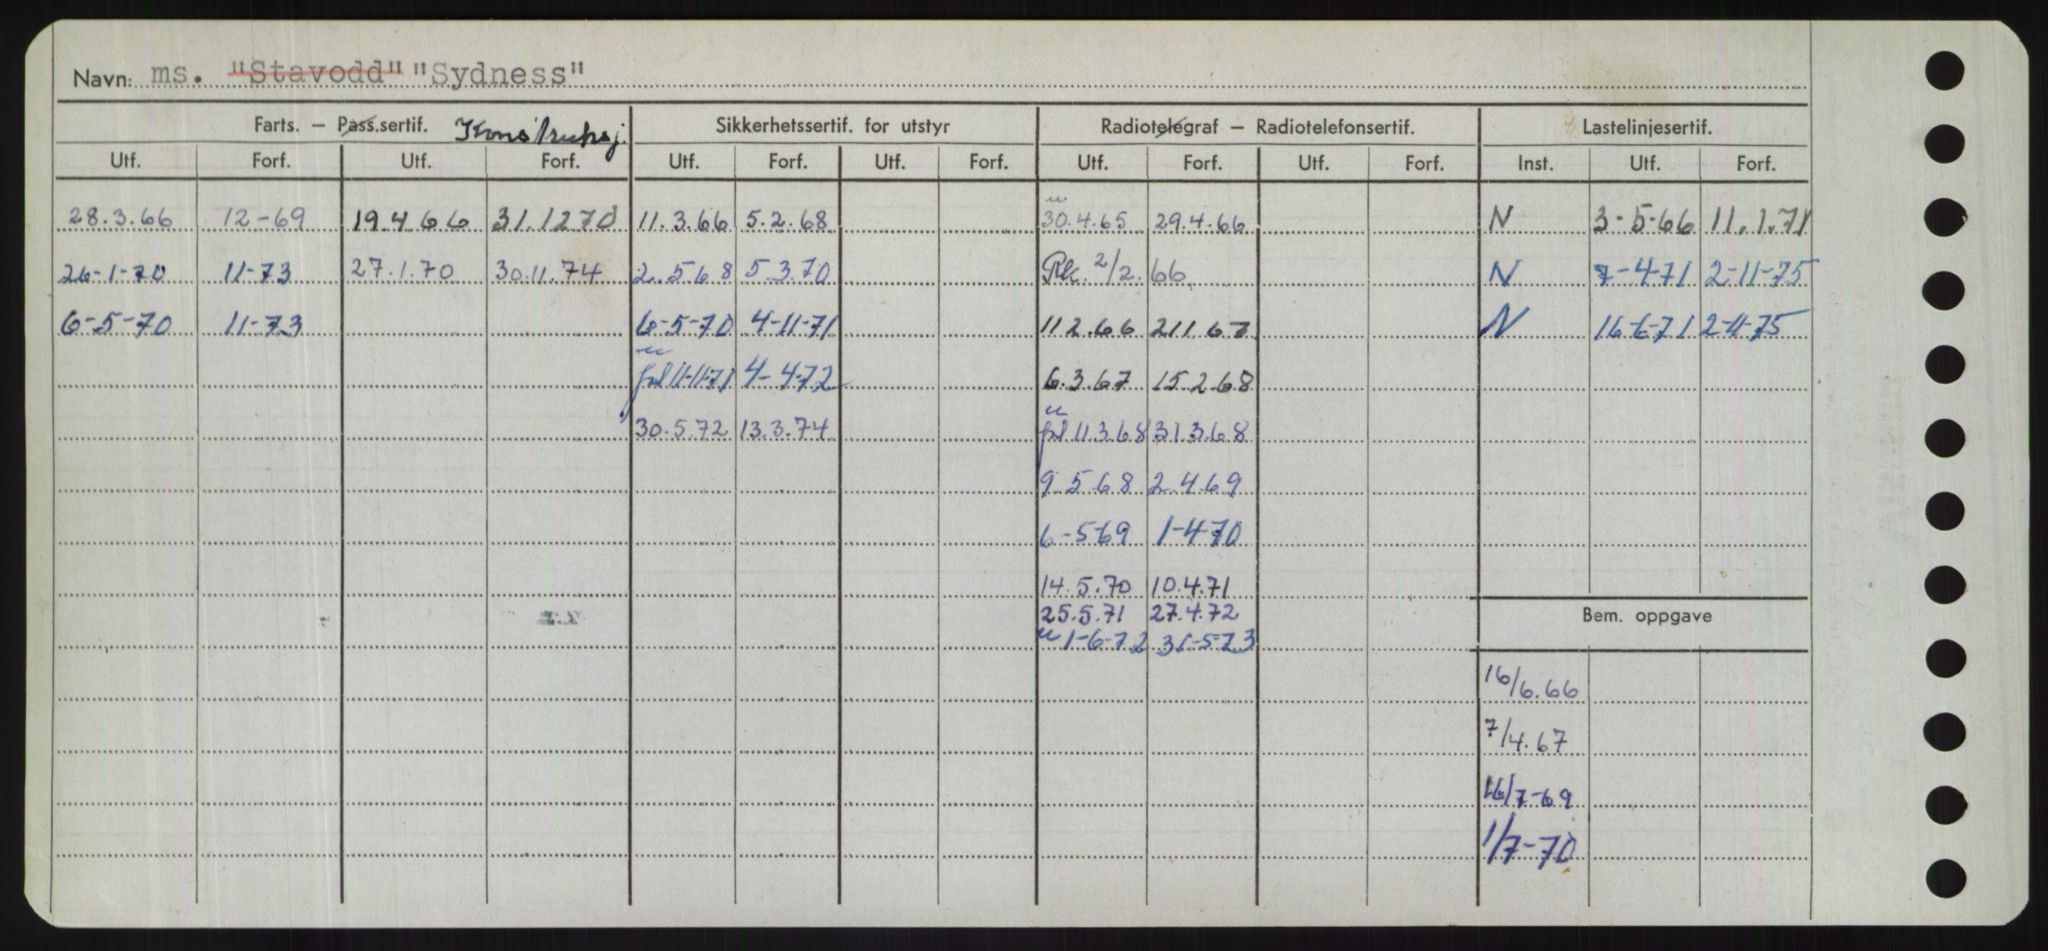 Navn: ms. "Stavodd" "Sydness"
Farts. – Pass.sertif. Konstruksj. Sikkerhetssertif. for utstyr Radiotelegraf – Radiotelefonsertif. Lastelinjesertif.
Utf. Forf. Utf. Forf. Utf. Forf. Utf. Forf. Utf. Forf. Utf. Forf. Inst. Utf. Forf.
28.3.66 12-69 19.4 66 31.12 70 11.3.66 5.2.68 30.4.65 29.4.66 N 3-5-66 11.1.71
26-1-70 11-73 27.1.70 30.11.74 2.5 68 5 3.70 Rk. 2/2.66 N 7-4-71 2-11-75
6-5-70 11-73 6-5-70 4-11-71 11 2.66 2 11 67 N 16-6-71 2-11-75
u
fol 11-11-71 4-4-72 6.3.67 15.2.68
u
30.5.72 13.3.74 fol 11 3.68 31 3.68
9.5.68 2.4.69
6-5-69 1-4-70
14.5.70 10.4.71
25.5.71 27.4.72
u 1-6-72 31-5-73
Bem. oppgave
16/6.66
7/4.67
16/7-69
1/7-70